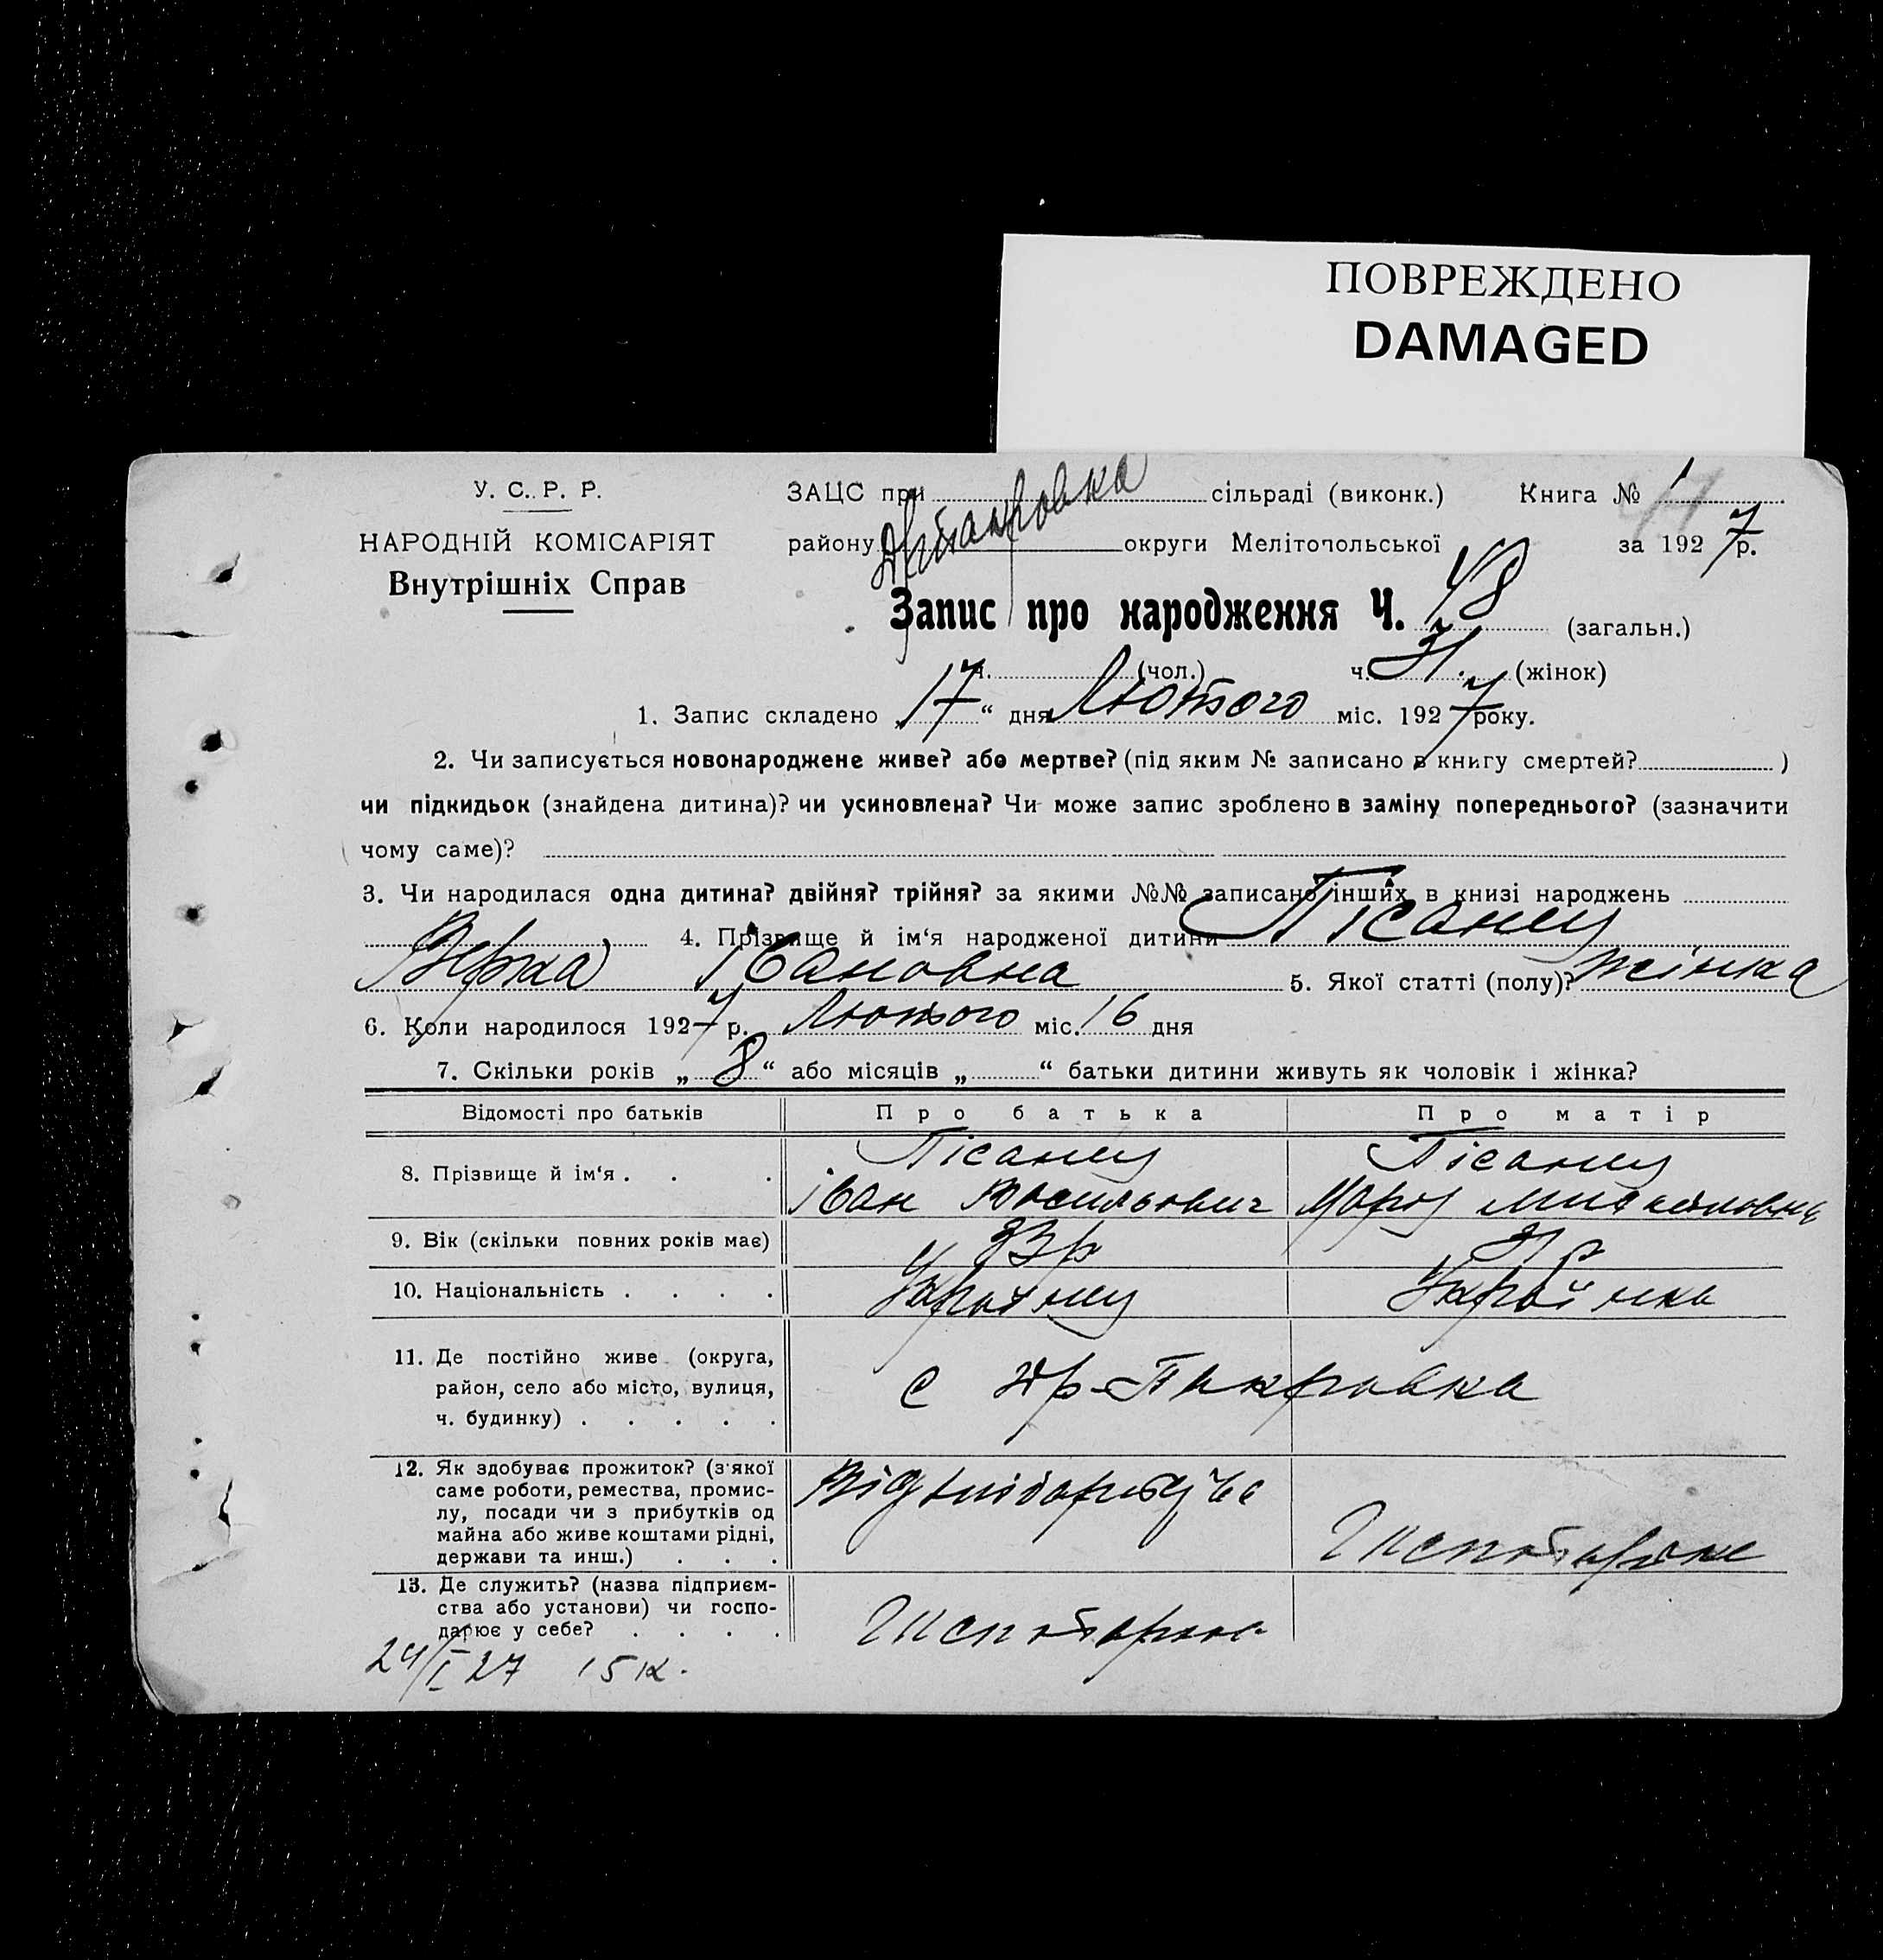 ПОВРЕЖДЕНО
DAMAGED
У. С. Р. Р.
НАРОДНІЙ КОМІСАРІЯТ
Внутрішніх Справ
ЗАЦС при сільраді (виконк.) Книга № 1
району округи Мелітопольської за 1927 р.
Запис про народження Ч. 48 (загальн.)
ч. (чол.) ч. 31 (жінок)
1. Запис складено „17“ дня Лютого міс. 1927 року.
2. Чи записується новонароджене живе? або мертве? (під яким № записано в книгу смертей? )
чи підкидьок (знайдена дитина)? чи усиновлена? Чи може запис зроблено в заміну попереднього? (зазначити
чому саме)?
3. Чи народилася одна дитина? двійня? трійня? за якими №№ записано інших в книзі народжень
4. Прізвище й ім‘я народженої дитини Пісанец
Івановна 5. Якої статті (полу)? жінка
6. Коли народилося 1927 р. Лютого міс. 16 дня
7. Скільки років „8“ або місяців „ “ батьки дитини живуть як чоловік і жінка?
Відомості про батьків Про батька Про матір
8. Прізвище й ім‘я . . . Пісанец Пісанец
Іван Васильович
9. Вік (скільки повних років має) 33 р
10. Національність . . . . Українец Українка
11. Де постійно живе (округа,
район, село або місто, вулиця,
ч. будинку) . . . . . с
12. Як здобуває прожиток? (з‘якої
саме роботи, ремества, промис-
лу, посади чи з прибутків од
майна або живе коштами рідні,
держави та инш.) . . .
13. Де служить? (назва підприєм-
ства або установи) чи госпо-
дарює у себе? . . . .
24/I 27 15 к.